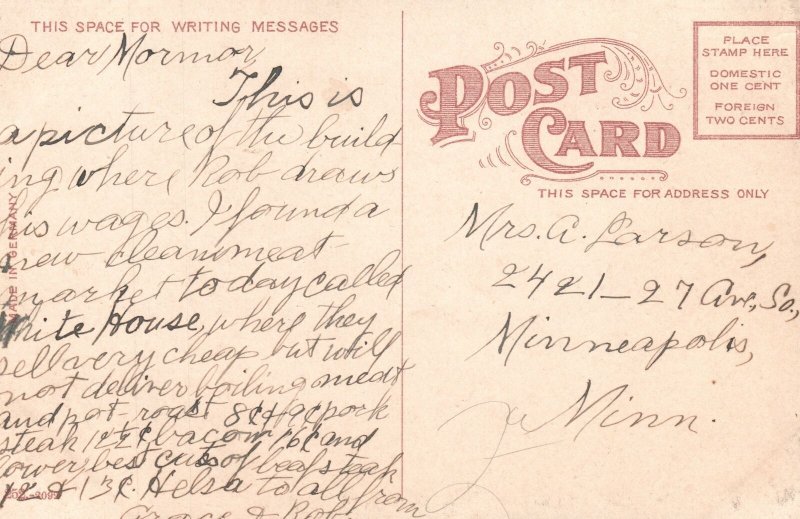 THIS SPACE FOR WRITING MESSAGES
Dear Mormor,
This is
a picture of the build-
ing where Rob draws
his wages. I found a
new clean meat
market today called
White House, where they
sell very cheap but will
not deliver boiling meat
and pot-roast 8¢ & 9¢ pork
steak 12½¢ bacon 16¢ and
lower, best cuts of beafsteak
12 & 13¢. Helsa to all from
Grace & Rob.
MADE IN GERMANY
POST
CARD
PLACE
STAMP HERE
DOMESTIC
ONE CENT
FOREIGN
TWO CENTS
THIS SPACE FOR ADDRESS ONLY
Mrs. A. Larson,
2421-27 Ave., So.,
Minneapolis,
Minn.